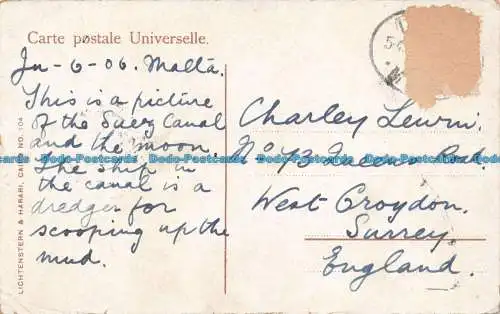 Carte postale Universelle.
Jn-6-06. Malta.
This is a picture
of the Suez Canal
and the moon.
The ship in
the canal is a
dredger for
scooping up the
mud.
Charley Lewin.
No 73 Queens Rd.
West Croydon.
Surrey.
England.
LICHTENSTERN & HARARI, CAIRO NO. 104
Dodo-Postcards Dodo-Postcards Dodo-Postcards Dodo-Postcards Dodo-Postcards